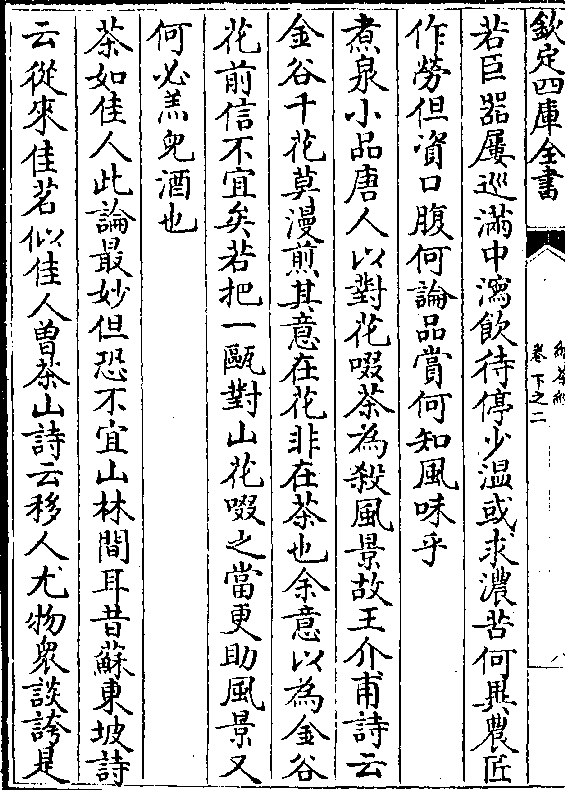 欽定四庫全書
續茶經
卷下之二
八
若巨器屢巡滿中瀉飲待停少温或求濃苦何異農匠
作勞但資口腹何論品賞何知風味乎
煮泉小品唐人以對花啜茶為殺風景故王介甫詩云
金谷千花莫漫煎其意在花非在茶也余意以為金谷
花前信不宜矣若把一甌對山花啜之當更助風景又
何必羔兒酒也
茶如佳人此論最妙但恐不宜山林間耳昔蘇東坡詩
云從來佳茗似佳人曽茶山詩云移人尤物衆談誇是